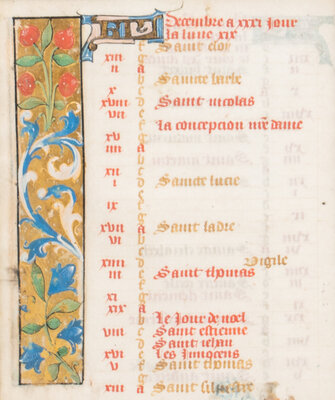 KL Decembre a xxxi jour
la lune xix
f Saint eloy
xiii g
ii A
b Saincte barbe
x c
xviii d Saint nicolas
vii e
f la concepcion nre dame
xv g
iiii A
b
xii c
i d Saincte lucie
e
ix f
g
xvii A Saint ladre
vi b
c
xiiii d Vigile
iii e Saint thomas
f
xi g
xix A
b le jour de noel
viii c Saint estienne
d Saint jehan
xvi e les innocens
v f Saint thomas
g
xiii A Saint